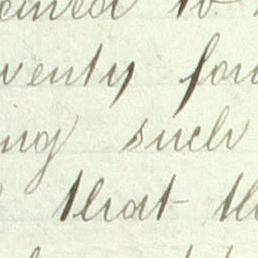 to
wenty fou
ng such
that th